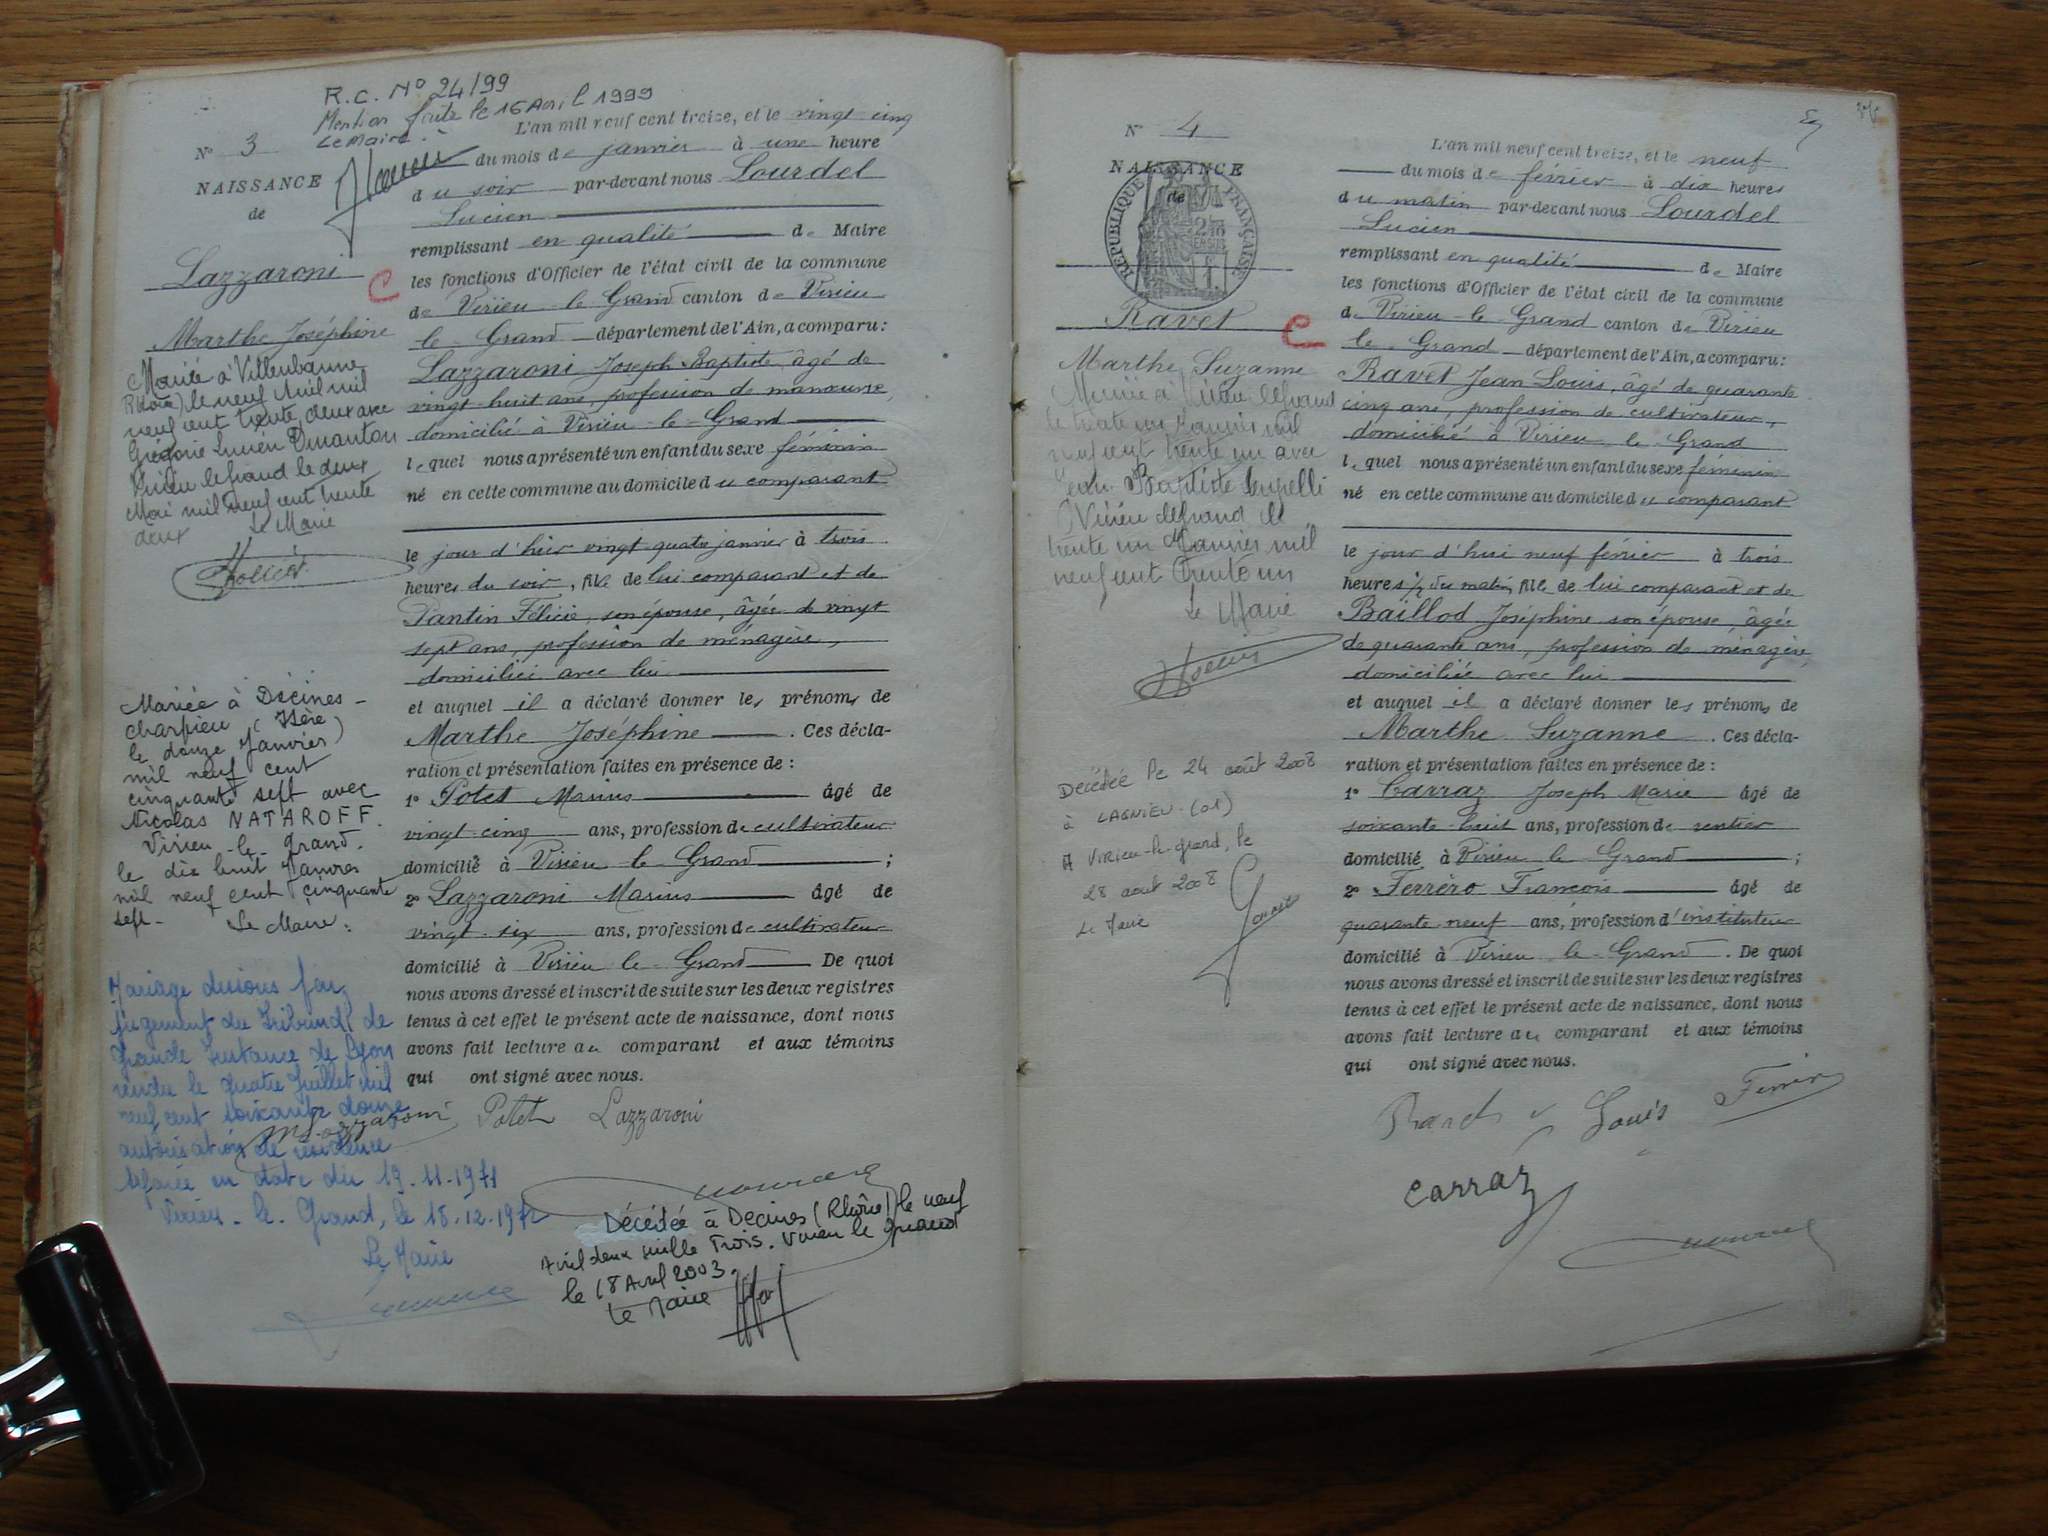 R.C. N° 24/99
Mention faite le 16 Avril 1999
Le Maire :
N° 3
NAISSANCE
de
Lazzaroni
Marthe Joséphine
Mariée à Villeurbanne
(Rhône) le neuf Avril mil
neuf cent trente deux avec
Lucien
Virieu le grand le deux
Mai mil neuf cent trente
deux
Le Maire
Mariée à Décines-
Charpieu (Isère)
le douze Janvier
mil neuf cent
cinquante sept avec
Nicolas NATAROFF.
Virieu-le-Grand.
le dix huit Janvier
mil neuf cent cinquante
sept- Le Maire :
Mariage dissous par
jugement du Tribunal de
Grande Instance de Lyon
rendu le quatre Juillet mil
neuf cent soixante douze
autorisation de résidence
séparée en date du 19.11.1971
Virieu-le-Grand, le 18.12.1972
Le Maire
L'an mil neuf cent treize, et le vingt cinq
du mois de janvier à une heure
du soir par-devant nous Lourdel
Lucien
remplissant en qualité de Maire
les fonctions d'Officier de l'état civil de la commune
de Virieu-le-Grand canton de Virieu
le-Grand département de l'Ain, a comparu :
Lazzaroni Joseph Baptiste, âgé de
vingt-huit ans, profession de manœuvre,
domicilié à Virieu-le-Grand
lequel nous a présenté un enfant du sexe féminin
né en cette commune au domicile du comparant
le jour d'hier vingt quatre janvier à trois
heures du soir, fille de lui comparant et de
Pantin Félicie, son épouse, âgée de vingt
sept ans, profession de ménagère,
domiciliée avec lui
et auquel il a déclaré donner les prénoms de
Marthe Joséphine. Ces décla-
ration et présentation faites en présence de :
1° Potet Marius âgé de
vingt-cinq ans, profession de cultivateur
domicilié à Virieu-le-Grand ;
2° Lazzaroni Marius âgé de
vingt-six ans, profession de cultivateur
domicilié à Virieu-le-Grand De quoi
nous avons dressé et inscrit de suite sur les deux registres
tenus à cet effet le présent acte de naissance, dont nous
avons fait lecture au comparant et aux témoins
qui ont signé avec nous.
Lazzaroni Potet Lazzaroni
Décédée à Decines (Rhône) le neuf
Avril deux mille Trois. Virieu le Grand
le 18 Avril 2003.
Le Maire
N° 4
NAISSANCE
de
REPUBLIQUE FRANÇAISE
Ravet
Marthe Suzanne
Mariée à Virieu le grand
le trente un Janvier mil
neuf cent trente un avec
Jean Baptiste
Virieu le grand le
trente un Janvier mil
neuf cent trente un
Le Maire
Décédée le 24 août 2008
à LAGNIEU (01)
A Virieu-le-grand, le
28 août 2008
Le Maire
L'an mil neuf cent treize, et le neuf
du mois de février à dix heures
du matin par-devant nous Lourdel
Lucien
remplissant en qualité de Maire
les fonctions d'Officier de l'état civil de la commune
de Virieu-le-Grand canton de Virieu
le-Grand département de l'Ain, a comparu :
Ravet Jean Louis, âgé de quarante
cinq ans, profession de cultivateur,
domicilié à Virieu-le-Grand
lequel nous a présenté un enfant du sexe féminin
né en cette commune au domicile du comparant
le jour d'hui neuf février à trois
heures ½ du matin, fille de lui comparant et de
Baillod Joséphine son épouse, âgée
de quarante ans, profession de ménagère,
domiciliée avec lui
et auquel il a déclaré donner les prénoms de
Marthe Suzanne. Ces décla-
ration et présentation faites en présence de :
1° Carraz Joseph Marie âgé de
soixante-huit ans, profession de rentier
domicilié à Virieu-le-Grand ;
2° Ferrèro François âgé de
quarante-neuf ans, profession d'instituteur
domicilié à Virieu-le-Grand. De quoi
nous avons dressé et inscrit de suite sur les deux registres
tenus à cet effet le présent acte de naissance, dont nous
avons fait lecture au comparant et aux témoins
qui ont signé avec nous.
Louis
Carraz